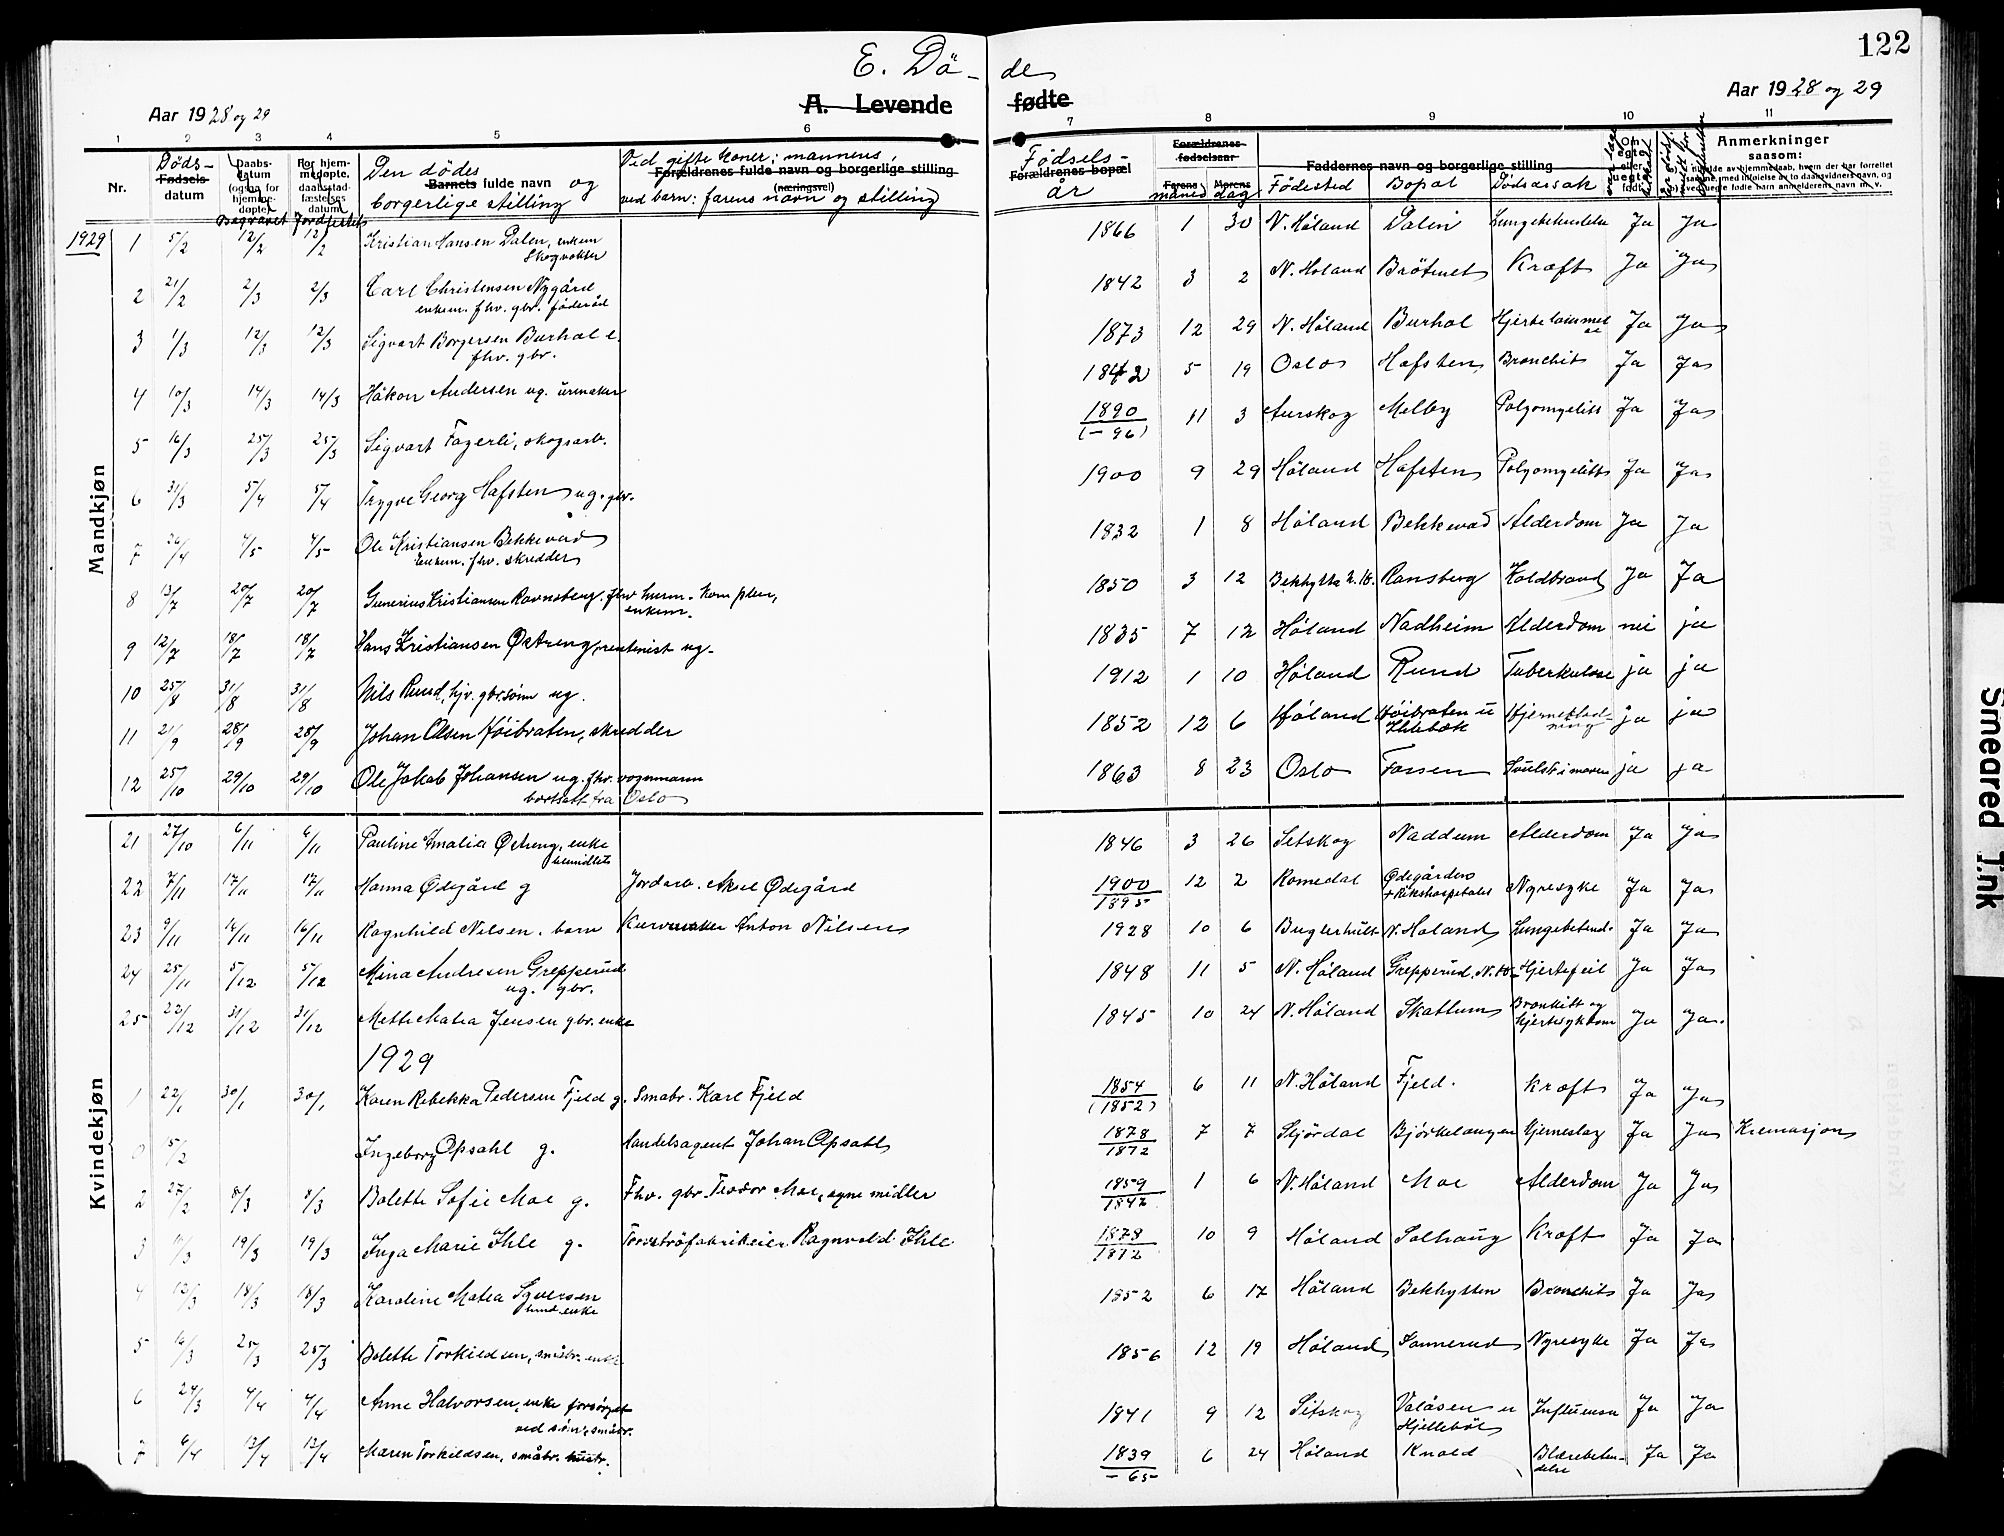 122
E. Dö-
des
A. Levende
fødte
Aar 1928 og 29
Aar 1928 og 29
1 2 3 4 5 6 7 8 9 10 11
Nr.
Døds-
Fødsels-
datum
Daabs-
datum
(ogsaa for
hjemme-
døpte).
Begravet
For hjem-
medøpte.
daabsstad-
fæstelses
datum.
Jordfestet
Den dødes
Barnets fulde navn og
borgerlige stilling
Ved gifte koner: mannens,
Forældrenes fulde navn og borgerlige stilling
(næringsvei)
ved barn: farens navn og stilling
Fødsels-
Forældrenes bopæl
år
Forældrenes
fødselsaar
Farens
Morens
måned dag
Faddernes navn og borgerlige stilling
Fødested Bopæl Dødsårsak
Om
egte
eller
uegte
født
Anmerkninger
saasom:
Mandkjøn
1929 1 5/2 12/2 12/2 Kristian Hansen Dalen, enkem skogvokter 1866 1 30 N. Høland Dalen Lungebetendelse Ja Ja
2 21/2 2/3 2/3 Carl Christensen Nygård enkem. fhv. gbr. føderåd 1842 3 2 N. Høland Bråtenet Kræft Ja Ja
3 1/3 12/3 12/3 Sigvart Borgersen Burhol e. fhv. gbr. 1873 12 29 N. Høland Burhol Hjertelammelse Ja Ja
4 10/3 14/3 14/3 Håkon Andersen ug. urmaker 1842 5 19 Oslo Hafsten Bronchit Ja Ja
5 16/3 25/3 25/3 Sigvart Fagerli, skogsarb. 1890 (-96) 11 3 Aurskog Melby Polyomyelitt Ja Ja
6 31/3 5/4 5/4 Trygve Georg Hafsten ug. gbr. 1900 9 29 Høland Hafsten Polyomyelitt Ja Ja
7 26/4 4/5 4/5 Ole Kristiansen Bekkevad Enkem. fhv. skredder 1832 1 8 Høland Bekkevad Alderdom Ja Ja
8 13/7 20/7 20/7 Gunerius Kristiansen Ravnsberg. fhv husm. kom plei, enkem. 1850 3 12 Bekkhytta Ransberg Koldbrand Ja Ja
9 12/7 18/7 18/7 Hans Kristiansen Østreng, rentenist ug. 1835 7 12 Høland Nadheim Alderdom nei ja
10 25/8 31/8 31/8 Nils Rund, hjv. gbr.sønn ug. 1912 1 10 Høland Rund Tuberkulose ja ja
11 21/9 28/9 28/9 Johan Olsen Høibraten, skredder 1852 12 6 Høland Høibraten u Ihlebæk Hjerneblødning ja ja
12 25/10 29/10 29/10 Ole Jakob Johansen ug. fhv. vognmann bortsatt fra Oslo 1863 8 23 Oslo Fossen Svulst i maven ja ja
Kvindekjøn
21 27/10 6/11 6/11 Pauline Amalia Østreng, enke bemidlet 1846 3 26 Setskog Naddum Alderdom Ja ja
22 7/11 17/11 17/11 Hanna Ødegård g Jordarb. Aksel Ødegård 1900 1895 12 2 Romedal Ødegården + Rikshospitalet Nyresyke Ja Ja
23 9/11 16/11 16/11 Ragnhild Nilsen. barn Kurvmaker Anton Nilsen 1928 10 6 Buglerhult N. Høland Lungebetend. Ja Ja
24 25/11 5/12 5/12 Mina Andresen Grepperud ug. gbr. 1848 11 5 N. Høland Grepperud. N. H. Hjertefeil Ja Ja
25 22/12 31/12 31/12 Mette Matea Jensen gbr. enke 1845 10 24 N. Høland Skattum Bronkitt og hjertesykdom Ja Ja.
1929
1 22/1 30/1 30/1 Karen Rebekka Pedersen Fjeld g. Småbr. Karl Fjeld 1854 (1852) 6 11 N. Høland Fjeld. Kræft Ja Ja
0 15/2 Ingeborg Opsahl g. Handelsagent Johan Opsahl 1878 1872 7 7 Stjördal Björkelangen Hjerneslag Ja Ja Kremasjon
2 27/2 8/3 8/3 Bolette Sofie Moe g. Fhv. gbr. Teodor Moe, egne midler 1859 1842 1 6 N. Høland Moe Alderdom Ja Ja
3 11/3 19/3 19/3 Inga Marie Ihle g. Torvströfabrikeier Ragnvald Ihle 1878 1872 10 9 Høland Solhaug Kræft Ja Ja
4 12/3 18/3 18/3 Karoline Matea Syversen husm. enke 1852 6 17 Høland Bekhytten Bronchit Ja Ja
5 16/3 25/3 25/3 Bolette Torkildsen, småbr. enke 1856 12 19 Høland Sannerud Nyresyke Ja Ja
6 24/3 4/4 4/4 Anne Halvorsen, enke forsörget ved sön, småbr. 1841 9 12 Setskog Valåsen u Hjellebøl Influensa Ja Ja
7 6/4 12/4 12/4 Maren Torkildsen, småbr. hustr. 1839 -65 6 24 Høland Knold Blærebetendelse Ja Ja
Smeared Ink